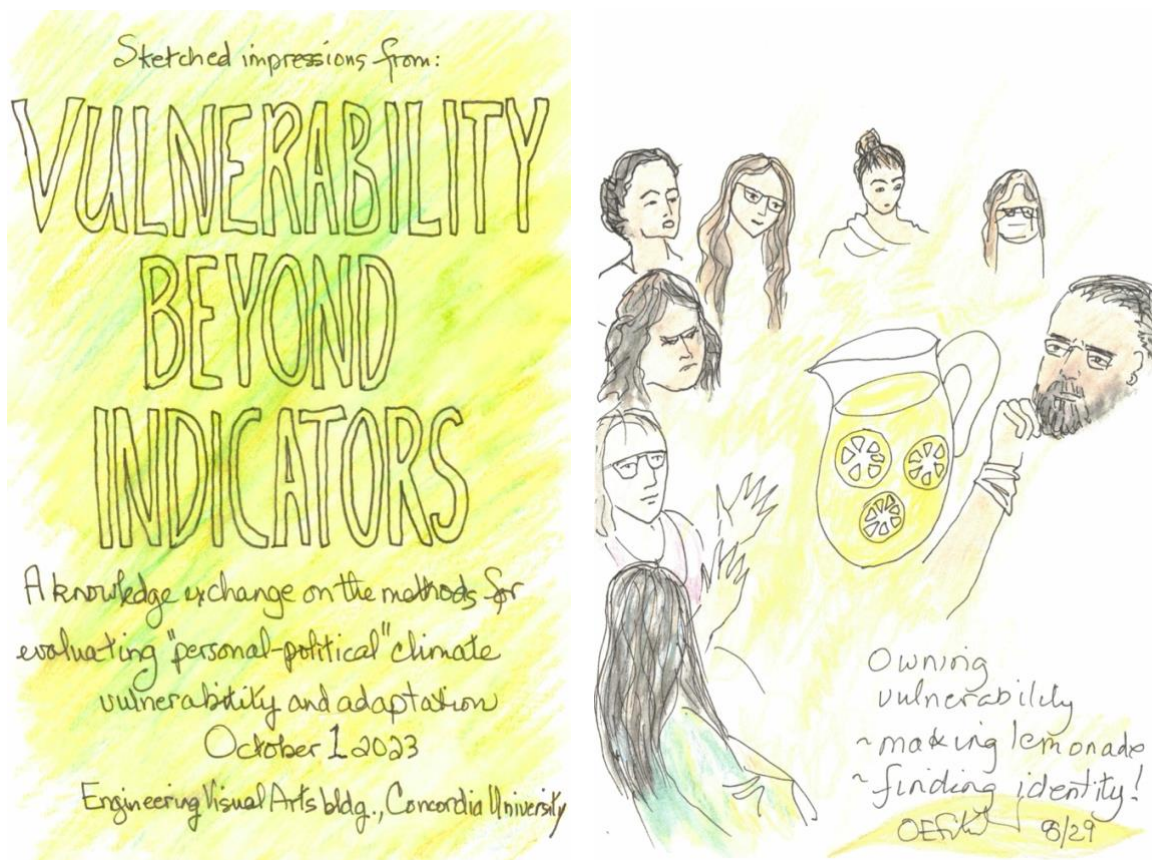 Sketched impressions from:
VULNERABILITY
BEYOND
INDICATORS
A knowledge exchange on the methods for
evaluating "personal-political" climate
vulnerability and adaptation
October 1 2023
Engineering Visual Arts bldg., Concordia University
Owning
vulnerability
~making lemonade
~finding identity!
8/29